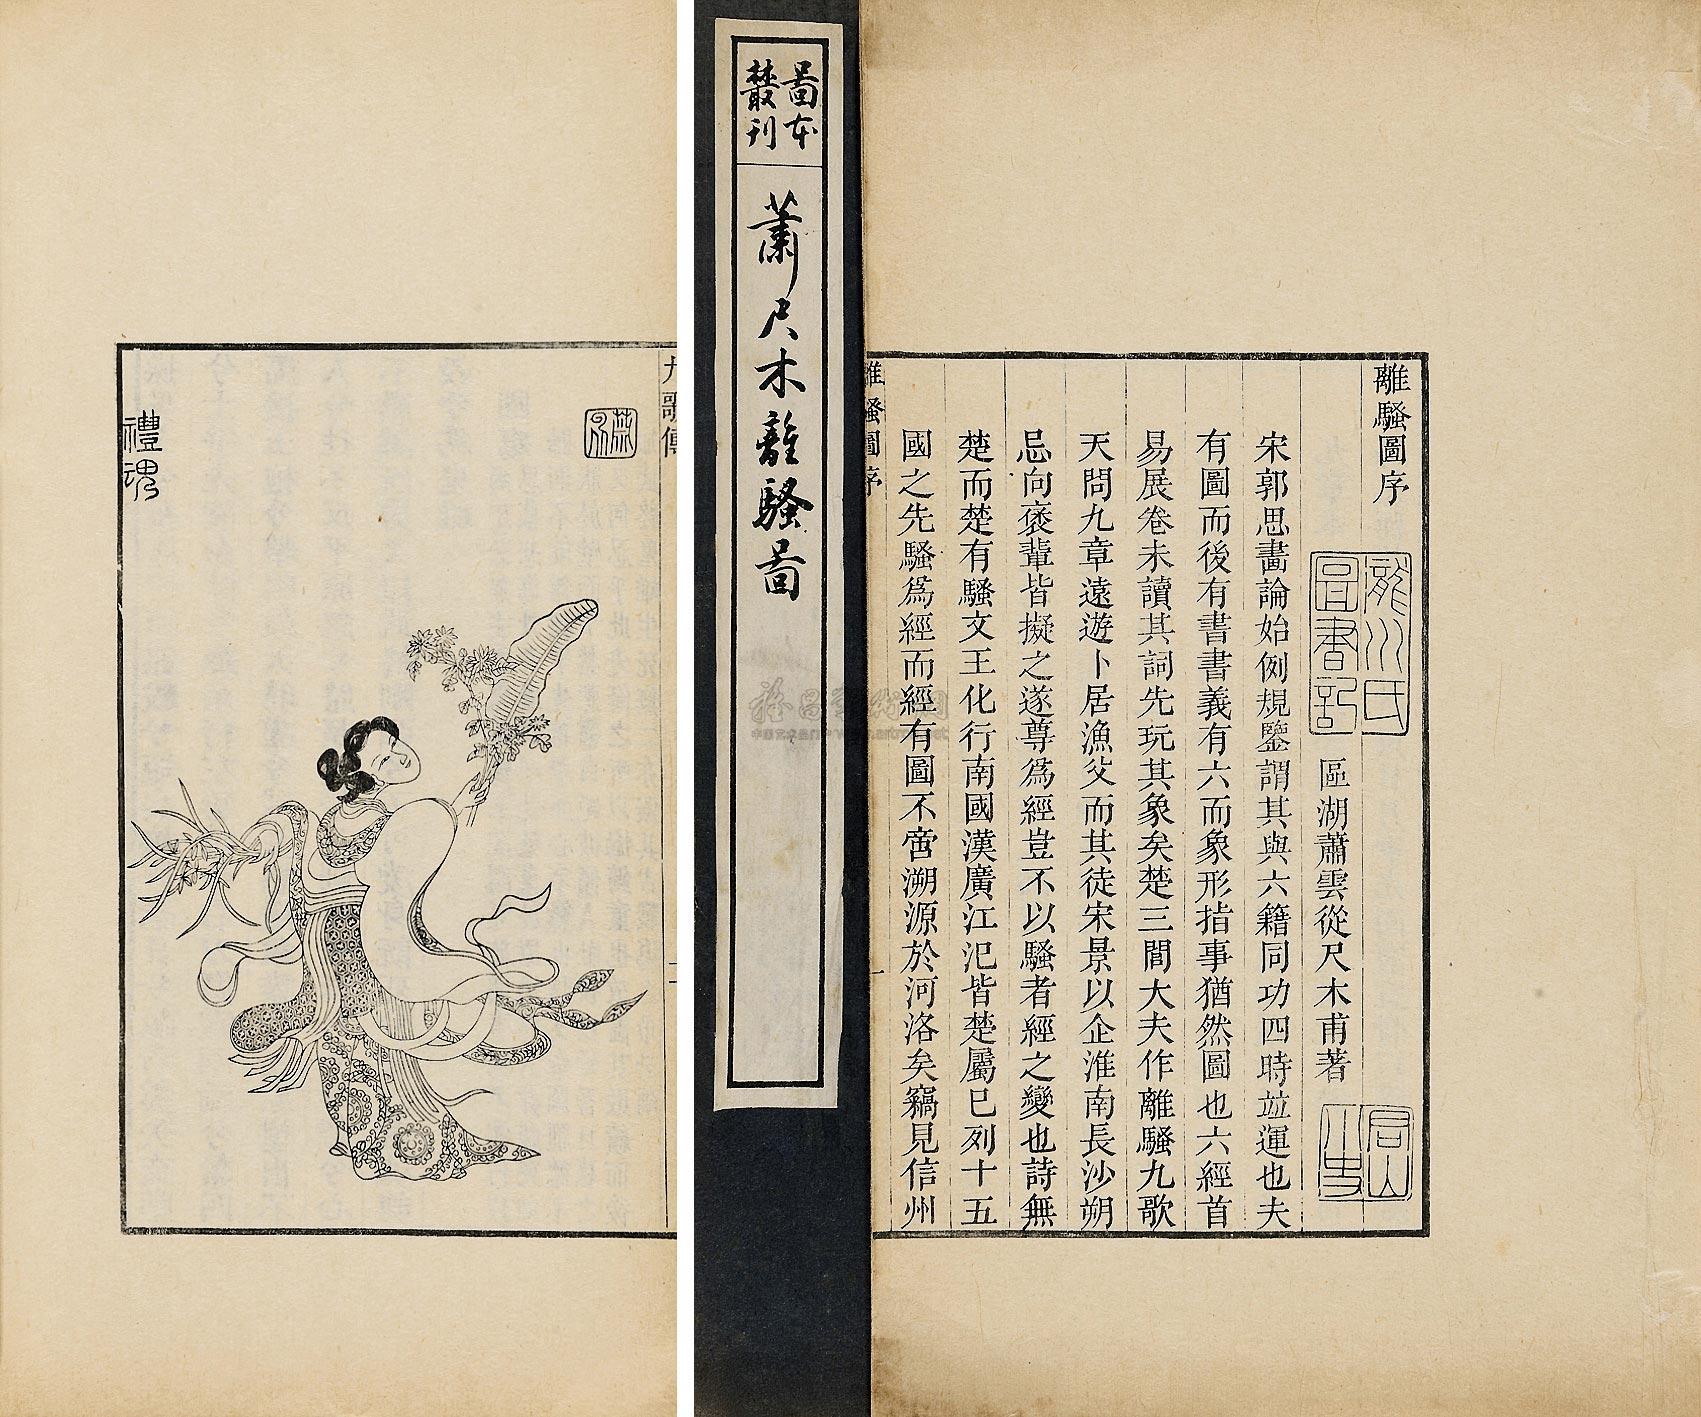 離騷圖序
區湖蕭雲從尺木甫著
宋郭思畫論始例規鑒謂其與六籍同功四時竝運也夫
有圖而後有書書義有六而象形指事猶然圖也六經首
易展卷未讀其詞先玩其象矣楚三閭大夫作離騷九歌
天問九章遠遊卜居漁父而其徒宋景以企淮南長沙朔
忌向襃輩皆擬之遂尊爲經豈不以騷者經之變也詩無
楚而楚有騷文王化行南國漢廣江汜皆楚屬已列十五
國之先騷爲經而經有圖不啻溯源於河洛矣竊見信州
離騷圖序
一
龍川氏
圖書記
圖本
叢刊
蕭尺木離騷圖
九歌傳
禮魂